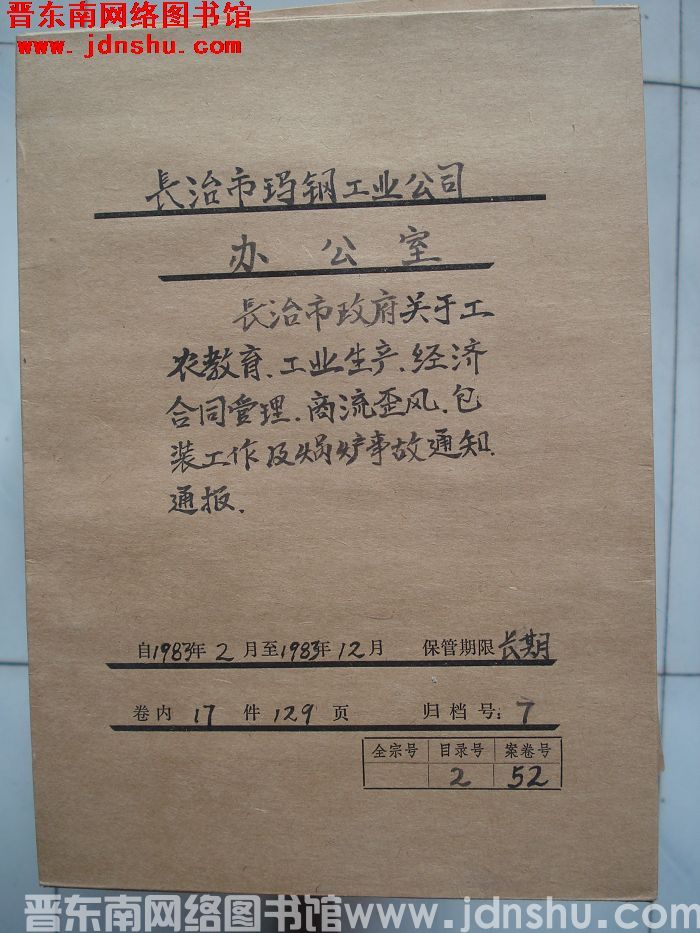 晋东南网络图书馆
www.jdnshu.com
長治市玛钢工业公司
办公室
長治市政府关于工
农教育、工业生产、经济
合同管理、商流歪风、包
装工作及锅炉事故通知、
通报.
自1983年2月至1983年12月 保管期限 长期
卷内 17 件 129 页 归档号: 7
全宗号 目录号 案卷号
2 52
晋东南网络图书馆www.jdnshu.com